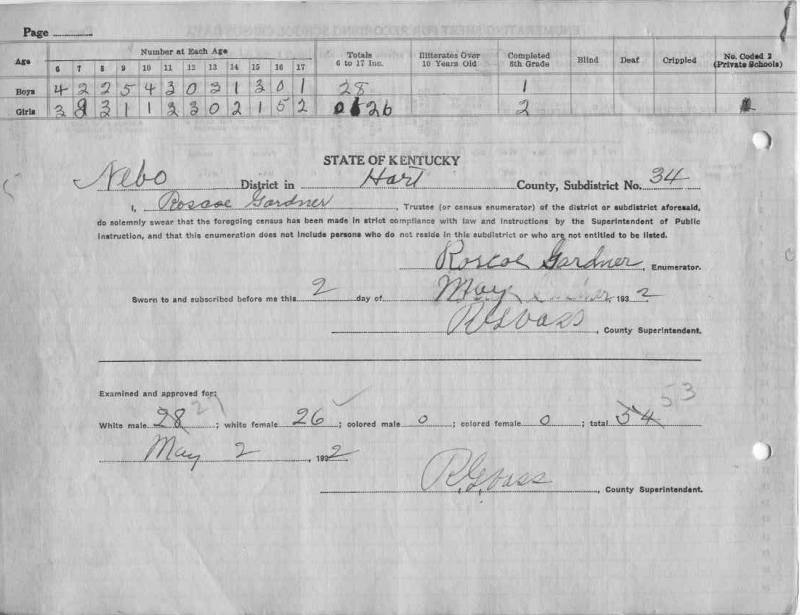 Page
Number at Each Age
Age 6 7 8 9 10 11 12 13 14 15 16 17 Totals 6 to 17 Inc. Illiterates Over 10 Years Old Completed 8th Grade Blind Deaf Crippled No. Coded 2 (Private Schools)
Boys 4 2 2 5 4 3 0 3 1 3 0 1 28 1
Girls 3 3 1 1 3 3 0 2 1 5 2 26 2
STATE OF KENTUCKY
Nebo District in Hart County, Subdistrict No. 34
I, Roscoe Gardner, Trustee (or census enumerator) of the district or subdistrict aforesaid,
do solemnly swear that the foregoing census has been made in strict compliance with law and instructions by the Superintendent of Public
Instruction, and that this enumeration does not include persons who do not reside in this subdistrict or who are not entitled to be listed.
Roscoe Gardner, Enumerator.
Sworn to and subscribed before me this 2 day of May 1932
R G Vass, County Superintendent.
Examined and approved for:
53
White male 28 27; white female 26; colored male 0; colored female 0; total 54
May 2, 1932
R. G. Vass, County Superintendent.